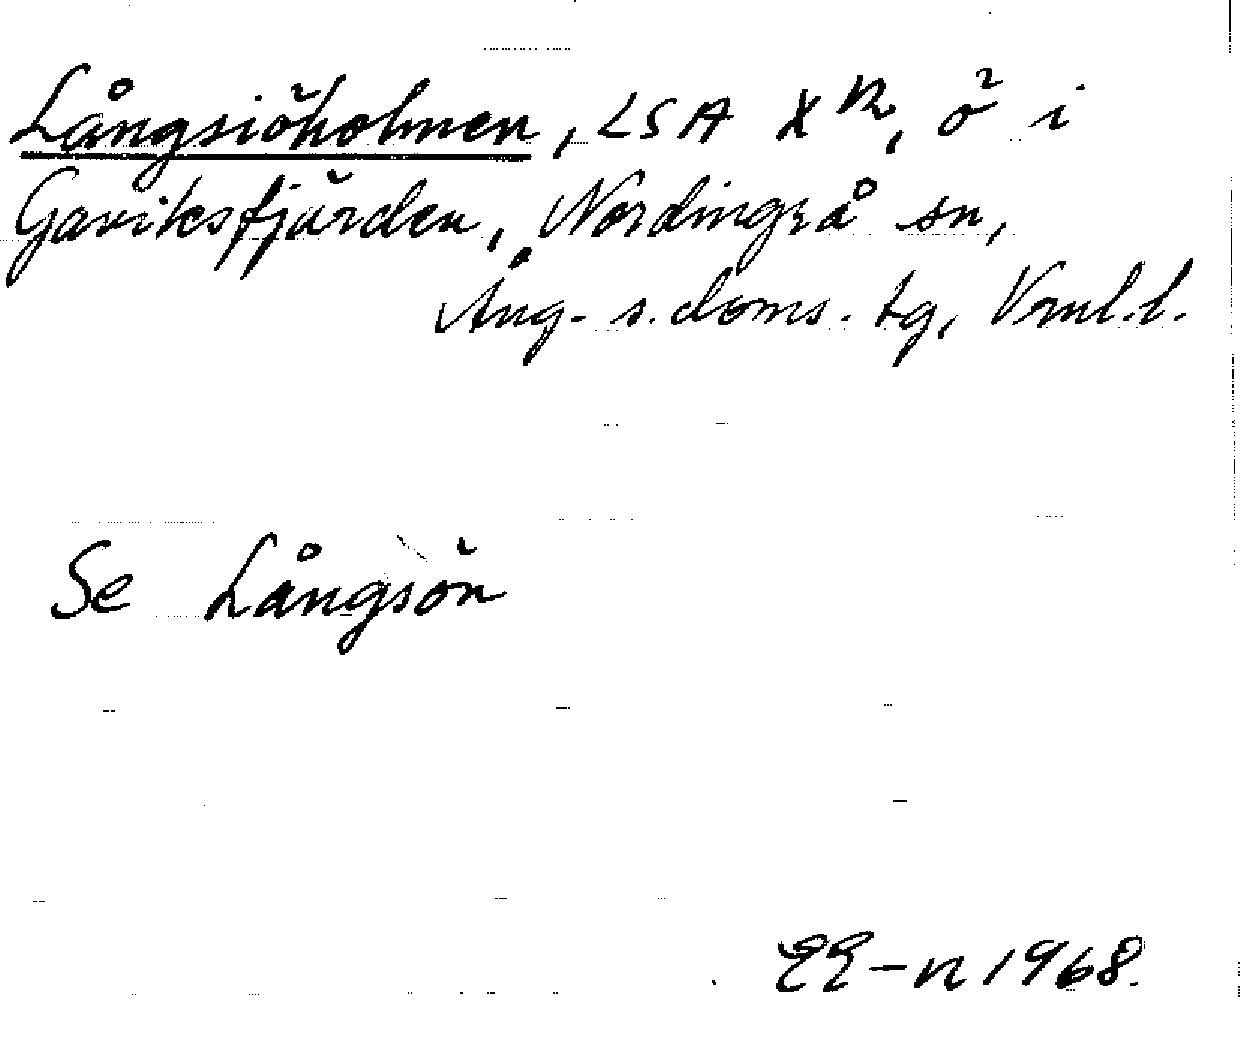 Långsiöholmen, LSA X 12, ö i
Gaviksfjärden, Nordingrå sn,
Ång. s. doms. tg, Vrnl.l.
Se Långsön
EE-n 1968.